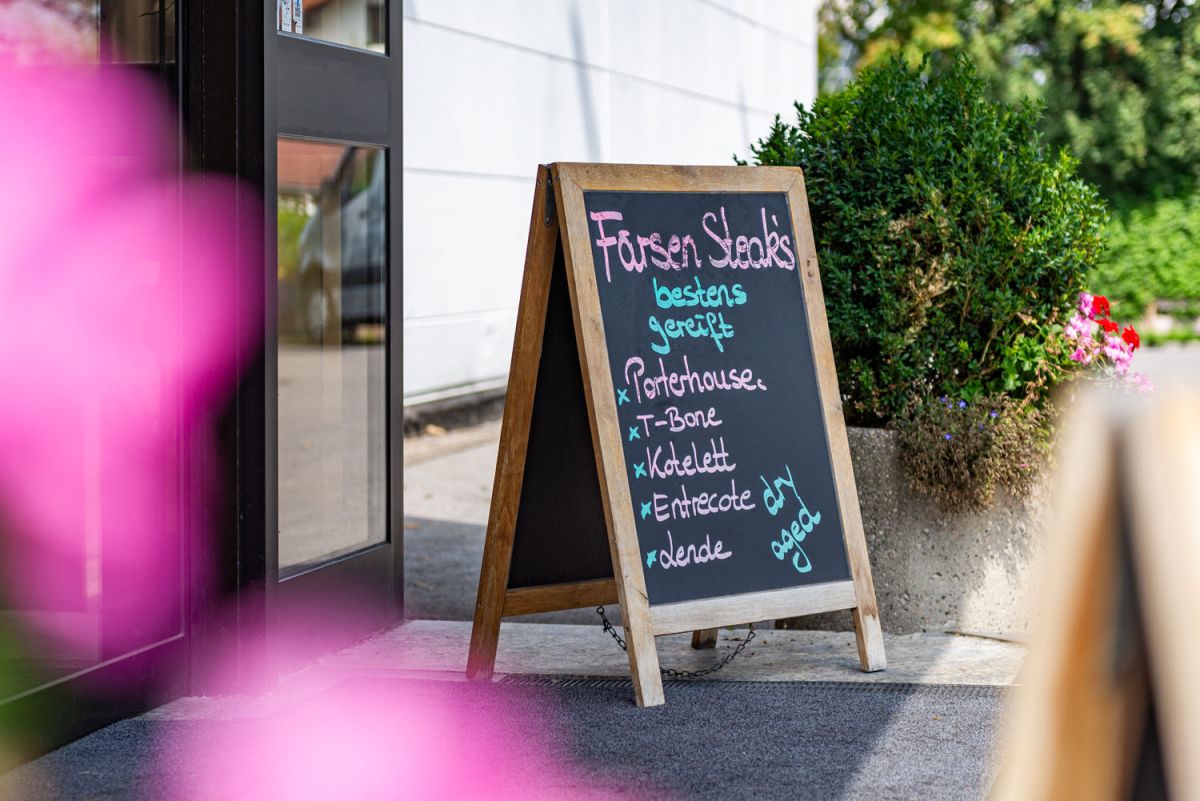 Färsen Steak's
bestens
gereift
x Porterhouse.
x T-Bone
x Kotelett
x Entrecote
x Lende
dry
aged